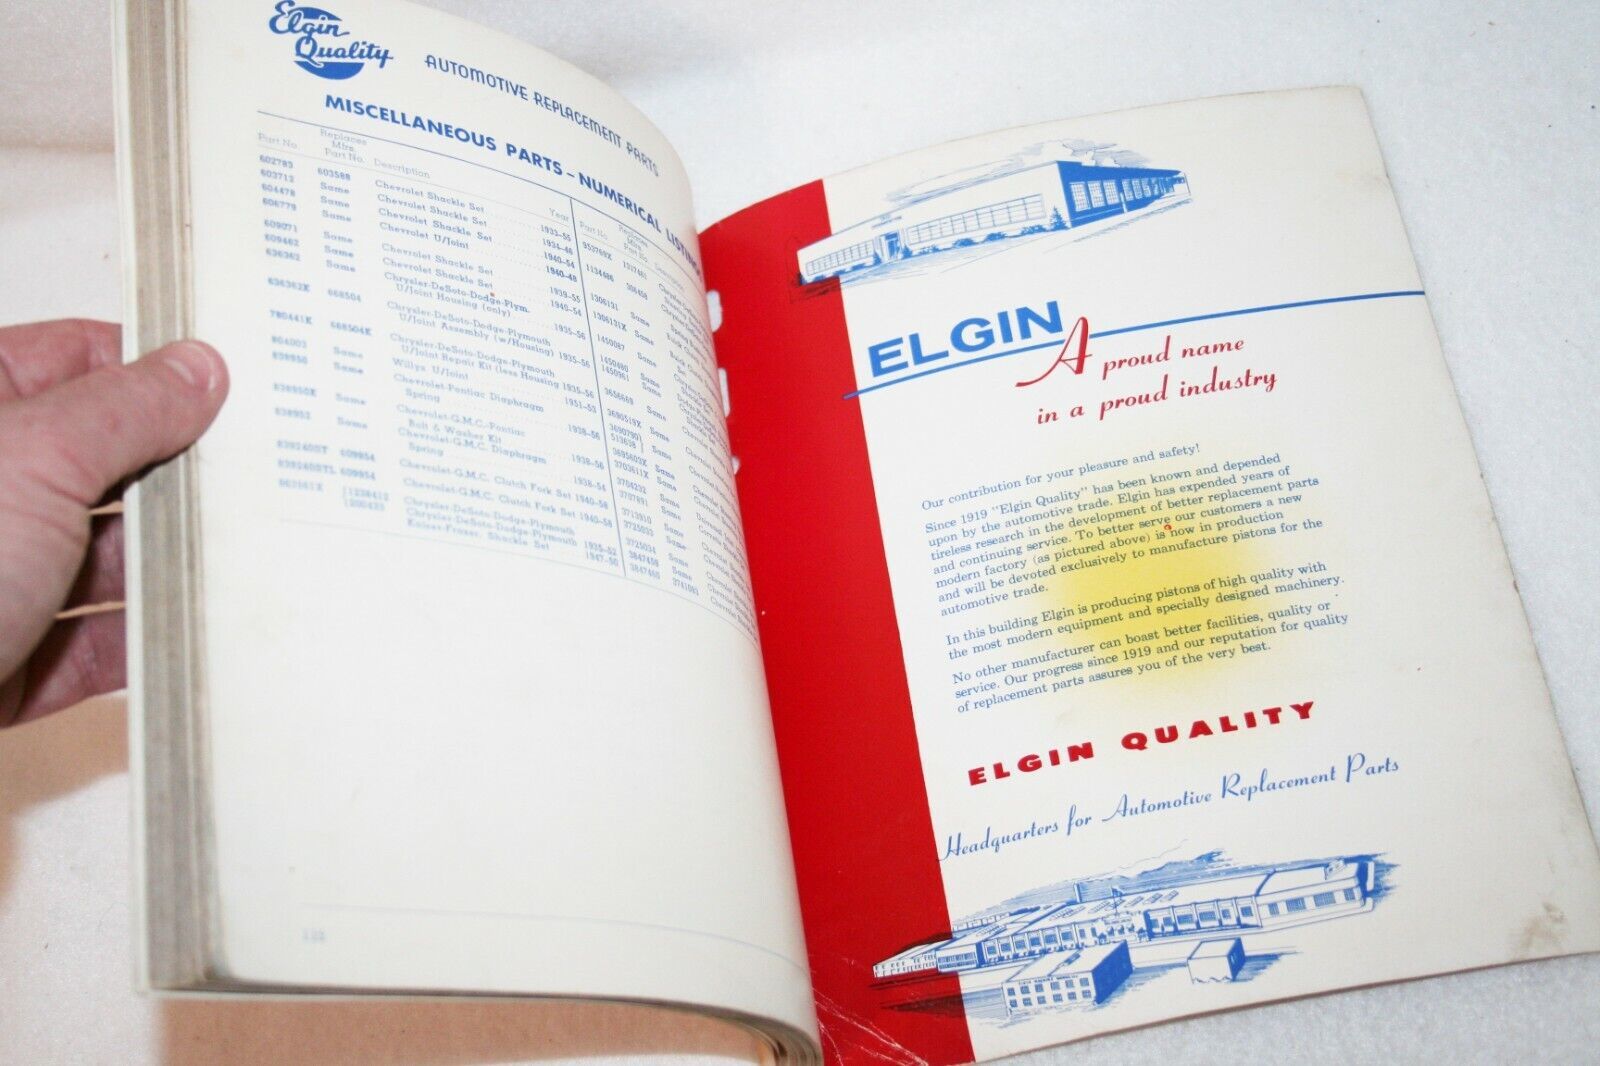 Elgin
Quality
AUTOMOTIVE REPLACEMENT PARTS
MISCELLANEOUS PARTS – NUMERICAL LISTING
Part No. Replaces Mfrs. Part No. Description Year
602783 603588 Chevrolet Shackle Set 1933-55
603712 Same Chevrolet Shackle Set 1934-46
604478 Same Chevrolet Shackle Set 1940-54
606779 Same Chevrolet U/Joint 1940-48
609071 Same Chevrolet Shackle Set 1939-55
609462 Same Chevrolet Shackle Set 1940-54
636362 Same Chrysler-DeSoto-Dodge-Plym.
U/Joint Housing (only) 1935-56
636362X 668504 Chrysler-DeSoto-Dodge-Plymouth
U/Joint Assembly (w/Housing) 1935-56
780441X 668504X Chrysler-DeSoto-Dodge-Plymouth
U/Joint Repair Kit (less Housing 1935-56
804003 Same Willys U/Joint 1951-53
838950 Same Chevrolet-Pontiac Diaphragm
Spring 1938-56
838950X Same Chevrolet-G.M.C.-Pontiac
Bolt & Washer Kit 1938-56
838952 Same Chevrolet-G.M.C. Diaphragm
Spring 1938-54
839240ST 609954 Chevrolet-G.M.C. Clutch Fork Set 1940-56
839240STL 609954 Chevrolet-G.M.C. Clutch Fork Set 1940-58
1238412 Chrysler-DeSoto-Dodge-Plymouth
Chrysler-DeSoto-Dodge-Plymouth 1935-52
Kaiser-Frazer, Shackle Set 1947-50
Part No. Replaces Mfrs. Part No. Description
953769X
1134486 306458
1306131 Same
1306131X Same
1450087 Same
1450480 Same
1450961 Same
3656669 Same
3690519X Same
3690790
513638
3695603X Same
3703611X Same
3704232 Same
3707891 Same
3713910 Same
3725033 Same
3725034 Same
3847458 Same
3847465 3741083
122
ELGIN
A proud name
in a proud industry
Our contribution for your pleasure and safety!
Since 1919 "Elgin Quality" has been known and depended
upon by the automotive trade. Elgin has expended years of
tireless research in the development of better replacement parts
and continuing service. To better serve our customers a new
modern factory (as pictured above) is now in production
and will be devoted exclusively to manufacture pistons for the
automotive trade.
In this building Elgin is producing pistons of high quality with
the most modern equipment and specially designed machinery.
No other manufacturer can boast better facilities, quality or
service. Our progress since 1919 and our reputation for quality
of replacement parts assures you of the very best.
ELGIN QUALITY
Headquarters for Automotive Replacement Parts